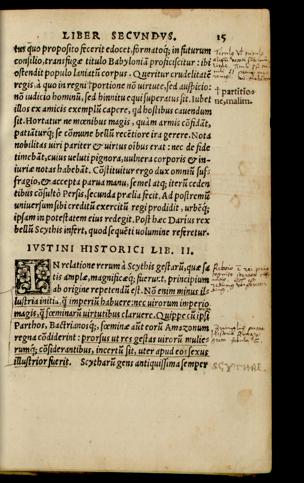 LIBER SECVNDVS. 15
tus quo proposito fecerit edocet, formatoq; in futurum
consilio, transfugæ titulo Babyloniã proficiscitur: ibi
ostendit populo laniatũ corpus. Queritur crudelitatẽ
regis, à quo in regni petitione nõ virtute, sed auspicio:
nõ iudicio hominũ, sed hinnitu equi superatus sit. Iubet
illos ex amicis exemplũ capere, qd hostibus cauendum
sit. Hortatur ne mœnibus magis, quàm armis cõfidãt,
patiãturq; se cõmune bellũ recẽtiore ira gerere. Nota
nobilitas viri pariter & virtus oĩbus erat: nec de fide
timebãt, cuius ueluti pignora, vulnera corporis & in-
iuriæ notas habebãt. Cõstituitur ergo dux omniũ suf-
fragio, & accepta parua manu, semel atq; iterũ ceden
tibus cõsultò Persis, secunda prælia fecit. Ad postremũ
uniuersum sibi creditũ exercitũ regi prodidit, urbẽq;
ipsam in potestatem eius redegit. Post hæc Darius rex
bellũ Scythis infert, quod sequẽti volumine referetur.
† partitio=
ne, malim.
IVSTINI HISTORICI LIB. II.
IN relatione rerum à Scythis gestarũ, quæ sa
tis amplæ, magnificæq; fuerũt, principium
ab origine repetendũ est. Nõ enim minus il=
lustria initia, q̃ imperiũ habuere: nec virorum imperio
magis, q̃ fœminarũ virtutibus claruere. Quippe cũ ipsi
Parthos, Bactrianosq;, fœminæ aũt eorũ Amazonum
regna cõdiderint: prorsus ut res gestas uirorũ mulie-
rumq; cõsiderantibus, incertũ sit, uter apud eos sexus
illustrior fuerit. Scytharũ gens antiquissima semper
SCYTHAE